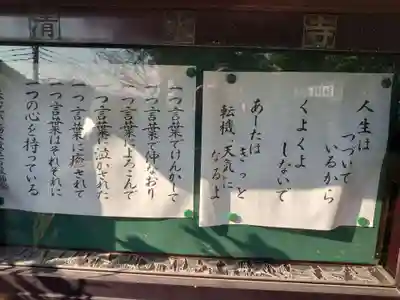 清
寺
人生は
つづいて
いるから
くよくよ
しないで
あしたは
きっと
転機、天気に
なるよ
一つ言葉でけんかして
一つ言葉で仲なおり
一つ言葉でよろこんで
一つ言葉に泣かされた
一つ言葉に癒されて
一つ言葉はそれぞれに
一つの心を持っている